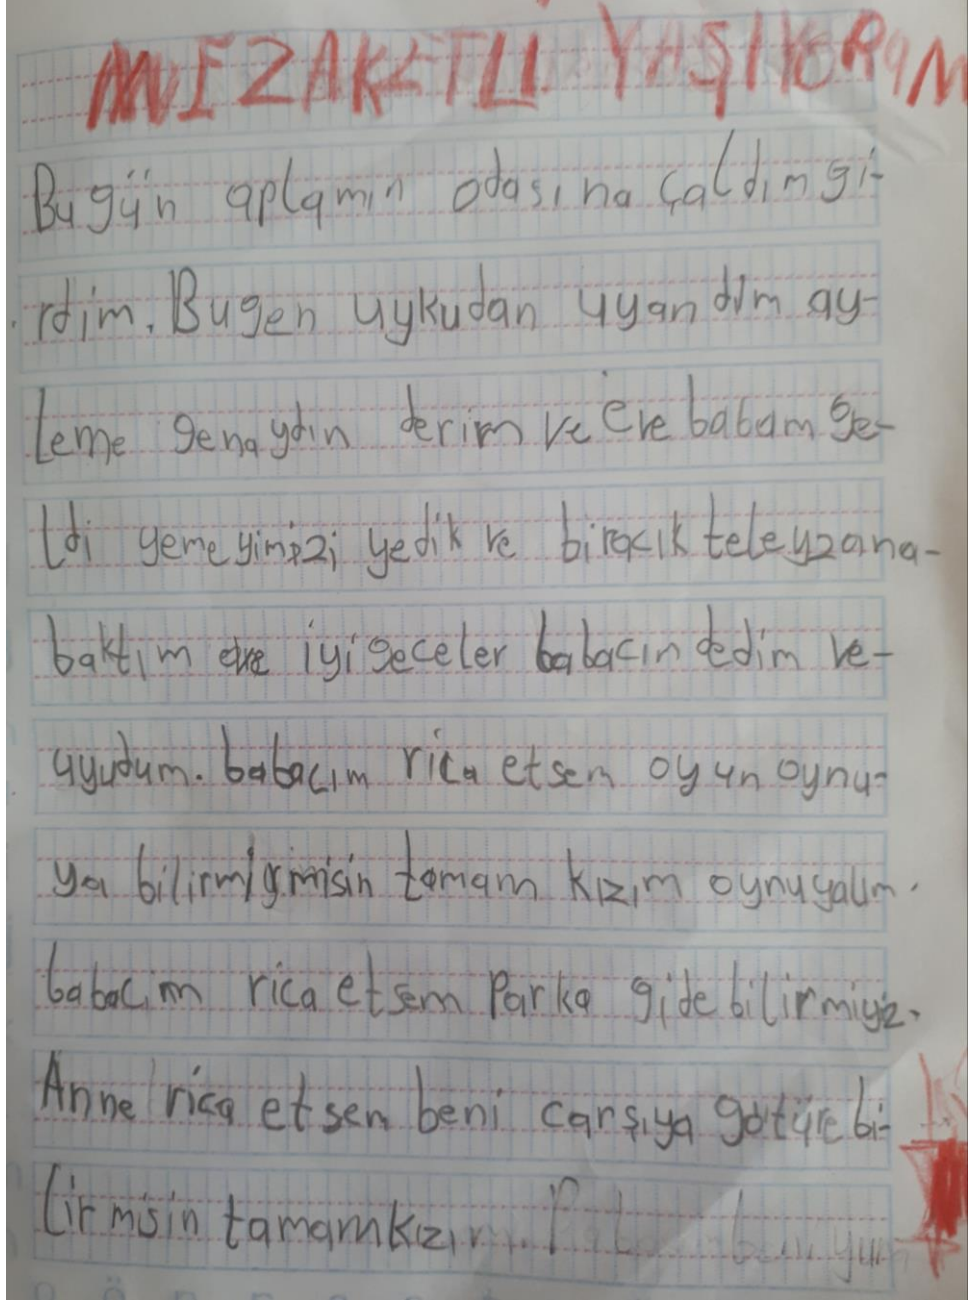 NEZAKETLİ YAŞIYORAM
Bugün aplamın odasına çaldım gi-
rdim. Bugen uykudan uyandım ay-
leme genaydın derim ve eve babam ge-
ldi yemeyimizi yedik ve biracık teleyzana-
baktım ve iyi geceler babacın dedim ve-
uyudum. babacım rica etsem oyun oynu-
ya bilirmiyimisin tamam kızım oynuyalım.
babacım rica etsem Parka gide bilirmiyiz.
Anne rica etsem beni carşıya götüre bi-
lirmisin tamam kızım.